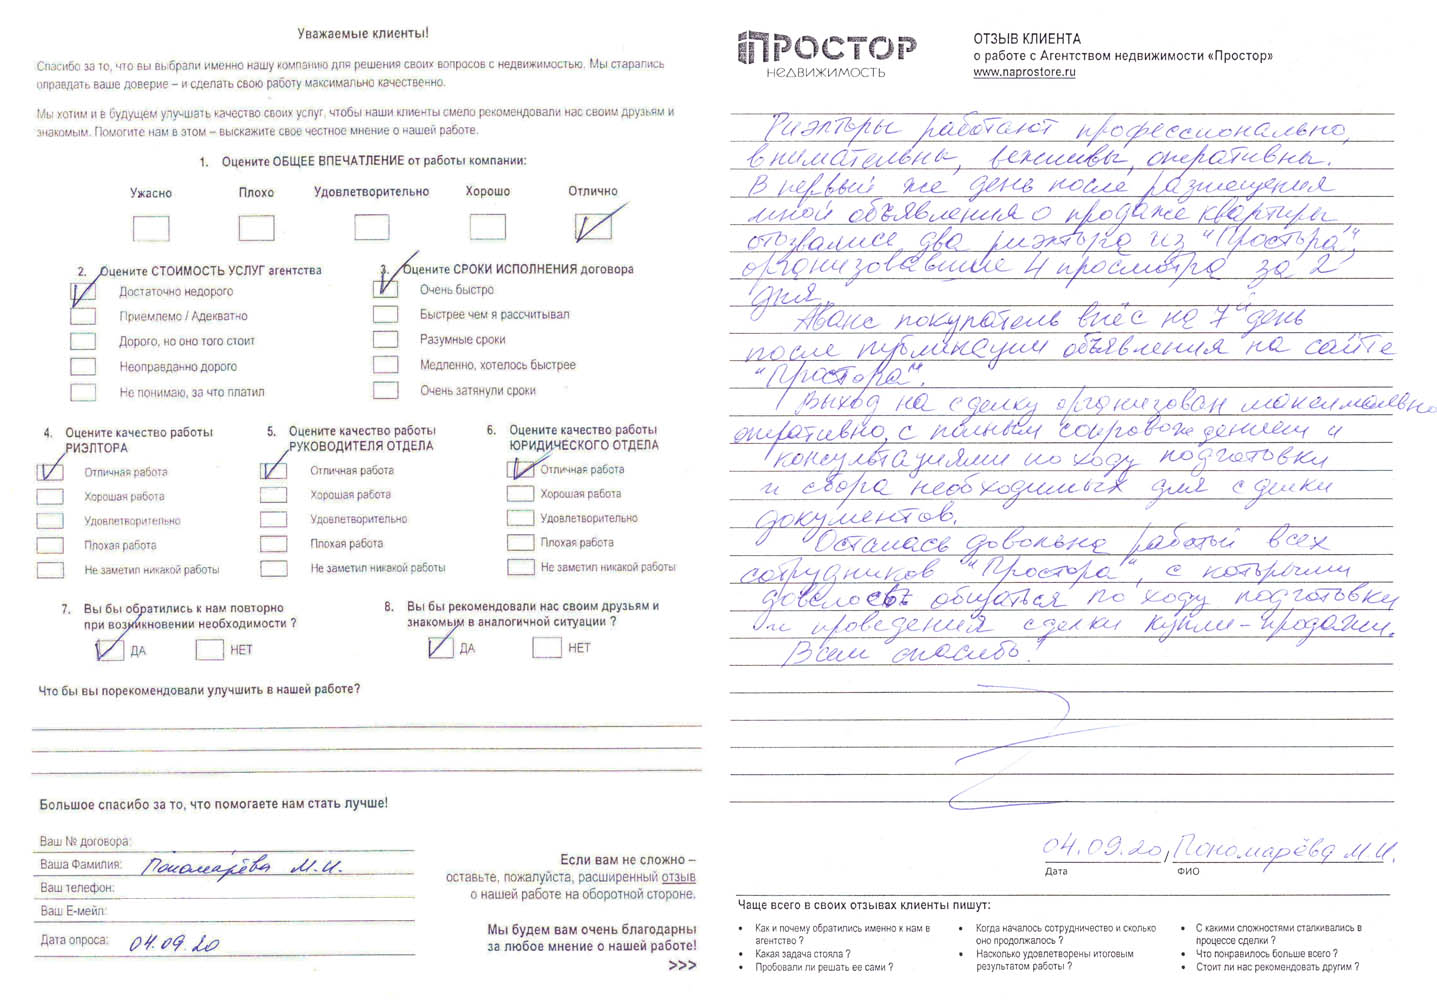 Уважаемые клиенты!
Спасибо за то, что вы выбрали именно нашу компанию для решения своих вопросов с недвижимостью. Мы старались
оправдать ваше доверие – и сделать свою работу максимально качественно.
Мы хотим и в будущем улучшать качество своих услуг, чтобы наши клиенты смело рекомендовали нас своим друзьям и
знакомым. Помогите нам в этом – выскажите свое честное мнение о нашей работе.
1. Оцените ОБЩЕЕ ВПЕЧАТЛЕНИЕ от работы компании:
Ужасно Плохо Удовлетворительно Хорошо Отлично
2. Оцените СТОИМОСТЬ УСЛУГ агентства
Достаточно недорого
Приемлемо / Адекватно
Дорого, но оно того стоит
Неоправданно дорого
Не понимаю, за что платил
3. Оцените СРОКИ ИСПОЛНЕНИЯ договора
Очень быстро
Быстрее чем я рассчитывал
Разумные сроки
Медленно, хотелось быстрее
Очень затянули сроки
4. Оцените качество работы
РИЭЛТОРА
Отличная работа
Хорошая работа
Удовлетворительно
Плохая работа
Не заметил никакой работы
5. Оцените качество работы
РУКОВОДИТЕЛЯ ОТДЕЛА
Отличная работа
Хорошая работа
Удовлетворительно
Плохая работа
Не заметил никакой работы
6. Оцените качество работы
ЮРИДИЧЕСКОГО ОТДЕЛА
Отличная работа
Хорошая работа
Удовлетворительно
Плохая работа
Не заметил никакой работы
7. Вы бы обратились к нам повторно
при возникновении необходимости ?
ДА НЕТ
8. Вы бы рекомендовали нас своим друзьям и
знакомым в аналогичной ситуации ?
ДА НЕТ
Что бы вы порекомендовали улучшить в нашей работе?
Большое спасибо за то, что помогаете нам стать лучше!
Ваш № договора:
Ваша Фамилия: Пономарёва М.И.
Ваш телефон:
Ваш Е-мейл:
Дата опроса: 04.09.20
Если вам не сложно –
оставьте, пожалуйста, расширенный отзыв
о нашей работе на оборотной стороне.
Мы будем вам очень благодарны
за любое мнение о нашей работе!
>>>
ПРОСТОР
НЕДВИЖИМОСТЬ
ОТЗЫВ КЛИЕНТА
о работе с Агентством недвижимости «Простор»
www.naprostore.ru
Риэлторы работают профессионально,
внимательны, вежливы, оперативны.
В первый же день после размещения
мной объявления о продаже квартиры
отозвались два риэлтора из "Простора",
организовавшие 4 просмотра за 2
дня.
Аванс покупатель внёс на 7й день
после публикации объявления на сайте
"Простора".
Выход на сделку организован максимально
оперативно, с полным сопровождением и
консультациями по ходу подготовки
и сбора необходимых для сделки
документов.
Осталась довольна работой всех
сотрудников "Простора", с которыми
довелось общаться по ходу подготовки
и проведения сделки купли-продажи.
Всем спасибо!
04.09.20, Пономарёва М.И.
Дата ФИО
Чаще всего в своих отзывах клиенты пишут:
• Как и почему обратились именно к нам в
агентство ?
• Какая задача стояла ?
• Пробовали ли решать ее сами ?
• Когда началось сотрудничество и сколько
оно продолжалось ?
• Насколько удовлетворены итоговым
результатом работы ?
• С какими сложностями сталкивались в
процессе сделки ?
• Что понравилось больше всего ?
• Стоит ли нас рекомендовать другим ?